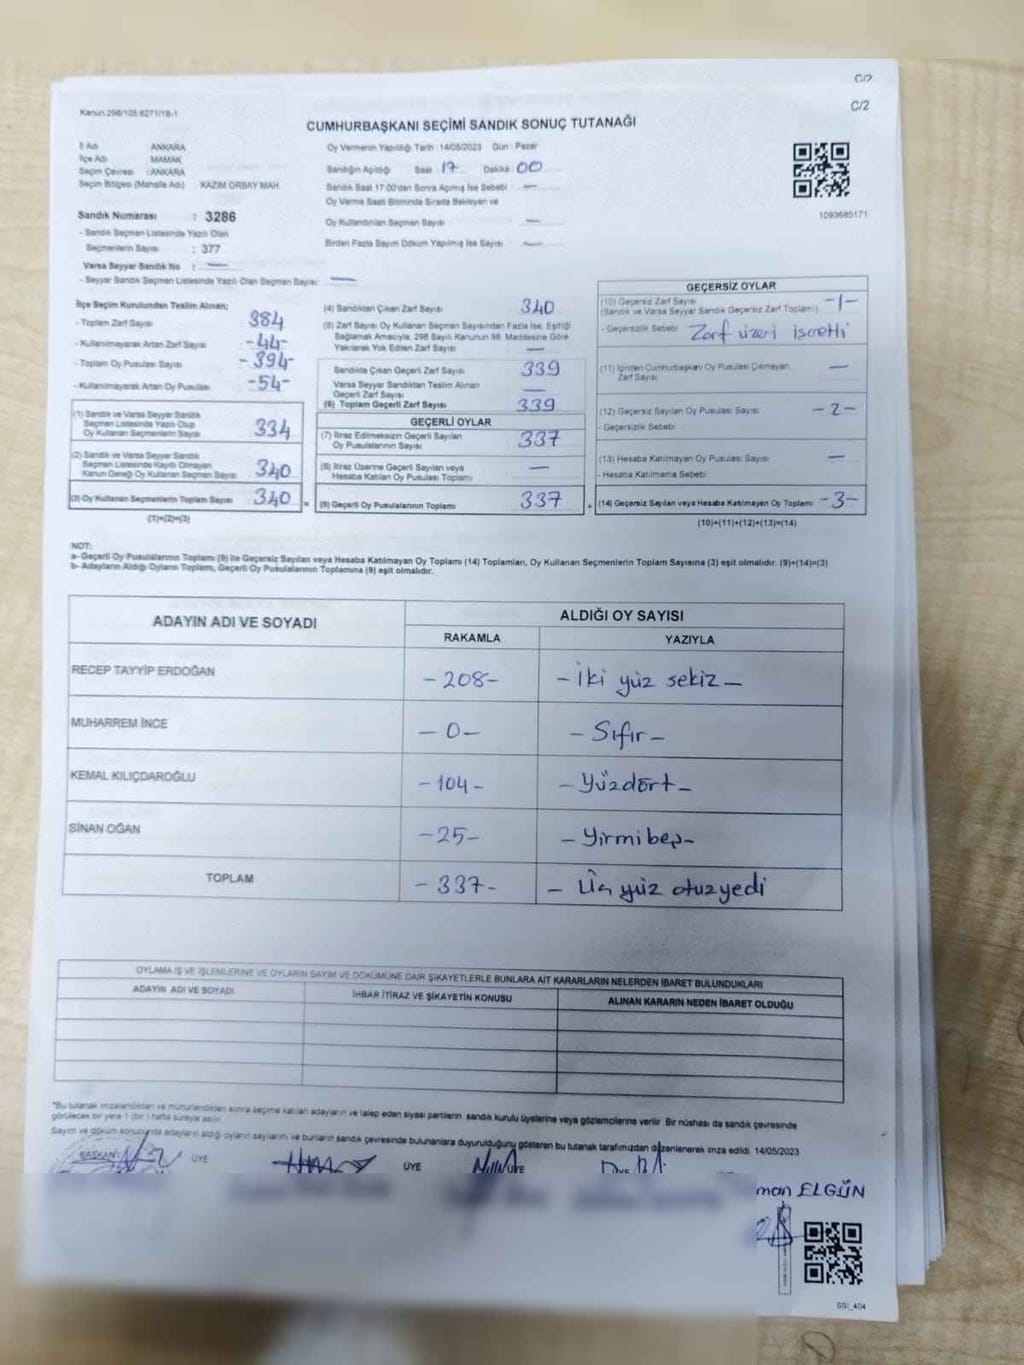 C/2
C/2
Kanun:298/105 6271/18-1
CUMHURBAŞKANI SEÇİMİ SANDIK SONUÇ TUTANAĞI
İl Adı ANKARA
İlçe Adı MAMAK
Seçim Çevresi : ANKARA
Seçim Bölgesi (Mahalle Adı) KAZIM ORBAY MAH.
Sandık Numarası : 3286
- Sandık Seçmen Listesinde Yazılı Olan
Seçmenlerin Sayısı : 377
Varsa Seyyar Sandık No : —
- Seyyar Sandık Seçmen Listesinde Yazılı Olan Seçmen Sayısı: —
Oy Vermenin Yapıldığı Tarih :14/05/2023 Gün : Pazar
Sandığın Açıldığı Saat : 17 Dakika : 00
Sandık Saat 17:00'den Sonra Açılmış İse Sebebi —
Oy Verme Saati Bitiminde Sırada Bekleyen ve
Oy Kullandırılan Seçmen Sayısı —
Birden Fazla Sayım Döküm Yapılmış İse Sayısı —
1093685171
İlçe Seçim Kurulundan Teslim Alınan;
- Toplam Zarf Sayısı 384
- Kullanılmayarak Artan Zarf Sayısı -44-
- Toplam Oy Pusulası Sayısı -394-
- Kullanılmayarak Artan Oy Pusulası -54-
(1) Sandık ve Varsa Seyyar Sandık
Seçmen Listesinde Yazılı Olup
Oy Kullanan Seçmenlerin Sayısı 334
(2) Sandık ve Varsa Seyyar Sandık
Seçmen Listesinde Kayıtlı Olmayan
Kanun Gereği Oy Kullanan Seçmen Sayısı 340
(3) Oy Kullanan Seçmenlerin Toplam Sayısı 340
(1)+(2)=(3)
(4) Sandıktan Çıkan Zarf Sayısı 340
(5) Zarf Sayısı Oy Kullanan Seçmen Sayısından Fazla İse, Eşitliği
Sağlamak Amacıyla, 298 Sayılı Kanunun 98. Maddesine Göre
Yakılarak Yok Edilen Zarf Sayısı —
Sandıkta Çıkan Geçerli Zarf Sayısı 339
Varsa Seyyar Sandıktan Teslim Alınan
Geçerli Zarf Sayısı —
(6) Toplam Geçerli Zarf Sayısı 339
GEÇERLİ OYLAR
(7) İtiraz Edilmeksizin Geçerli Sayılan
Oy Pusulalarının Sayısı 337
(8) İtiraz Üzerine Geçerli Sayılan veya
Hesaba Katılan Oy Pusulası Toplamı —
= (9) Geçerli Oy Pusulalarının Toplamı 337
GEÇERSİZ OYLAR
(10) Geçersiz Zarf Sayısı -1-
(Sandık ve Varsa Seyyar Sandık Geçersiz Zarf Toplamı)
- Geçersizlik Sebebi Zarf üzeri işaretli
(11) İçinden Cumhurbaşkanı Oy Pusulası Çıkmayan —
Zarf Sayısı
(12) Geçersiz Sayılan Oy Pusulası Sayısı -2-
- Geçersizlik Sebebi
(13) Hesaba Katılmayan Oy Pusulası Sayısı —
- Hesaba Katılmama Sebebi
+ (14) Geçersiz Sayılan veya Hesaba Katılmayan Oy Toplamı -3-
(10)+(11)+(12)+(13)=(14)
NOT:
a- Geçerli Oy Pusulalarının Toplamı (9) ile Geçersiz Sayılan veya Hesaba Katılmayan Oy Toplamı (14) Toplamları, Oy Kullanan Seçmenlerin Toplam Sayısına (3) eşit olmalıdır. (9)+(14)=(3)
b- Adayların Aldığı Oyların Toplamı, Geçerli Oy Pusulalarının Toplamına (9) eşit olmalıdır.
ADAYIN ADI VE SOYADI ALDIĞI OY SAYISI
RAKAMLA YAZIYLA
RECEP TAYYİP ERDOĞAN -208- -İki yüz sekiz-
MUHARREM İNCE -0- -Sıfır-
KEMAL KILIÇDAROĞLU -104- -Yüzdört-
SİNAN OĞAN -25- -Yirmibeş-
TOPLAM -337- -Üç yüz otuzyedi
OYLAMA İŞ VE İŞLEMLERİNE VE OYLARIN SAYIM VE DÖKÜMÜNE DAİR ŞİKAYETLERLE BUNLARA AİT KARARLARIN NELERDEN İBARET BULUNDUKLARI
ADAYIN ADI VE SOYADI İHBAR İTİRAZ VE ŞİKAYETİN KONUSU ALINAN KARARIN NEDEN İBARET OLDUĞU
*Bu tutanak imzalandıktan ve mühürlendikten sonra seçime katılan adayların ve talep eden siyasi partilerin sandık kurulu üyelerine veya gözlemcilerine verilir. Bir nüshası da sandık çevresinde
görülecek bir yere 1 (bir) hafta süreyle asılır.
Sayım ve döküm sonucunda adayların aldığı oyların sayılarını ve bunların sandık çevresinde bulunanlara duyurulduğunu gösteren bu tutanak tarafımızdan düzenlenerek imza edildi. 14/05/2023
BAŞKAN ÜYE ÜYE ÜYE
man ELGÜN
SSI_404